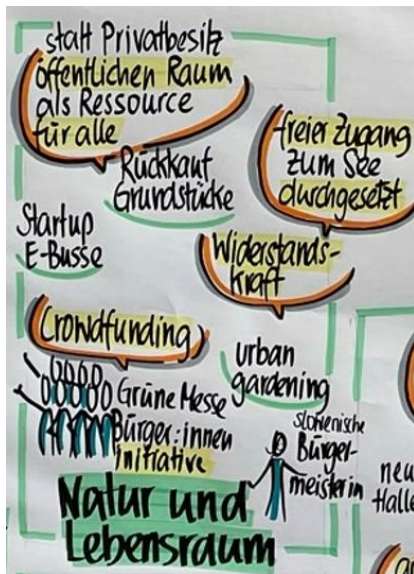 statt Privatbesitz
öffentlichen Raum
als Ressource
für alle
Rückkauf
Grundstücke
freier Zugang
zum See
durchgesetzt
Startup
E-Busse
Widerstands-
kraft
Crowdfunding
urban
gardening
Grüne Messe
Bürger:innen
Initiative
slowenische
Bürger-
meisterin
Natur und
Lebensraum
neu
Halle